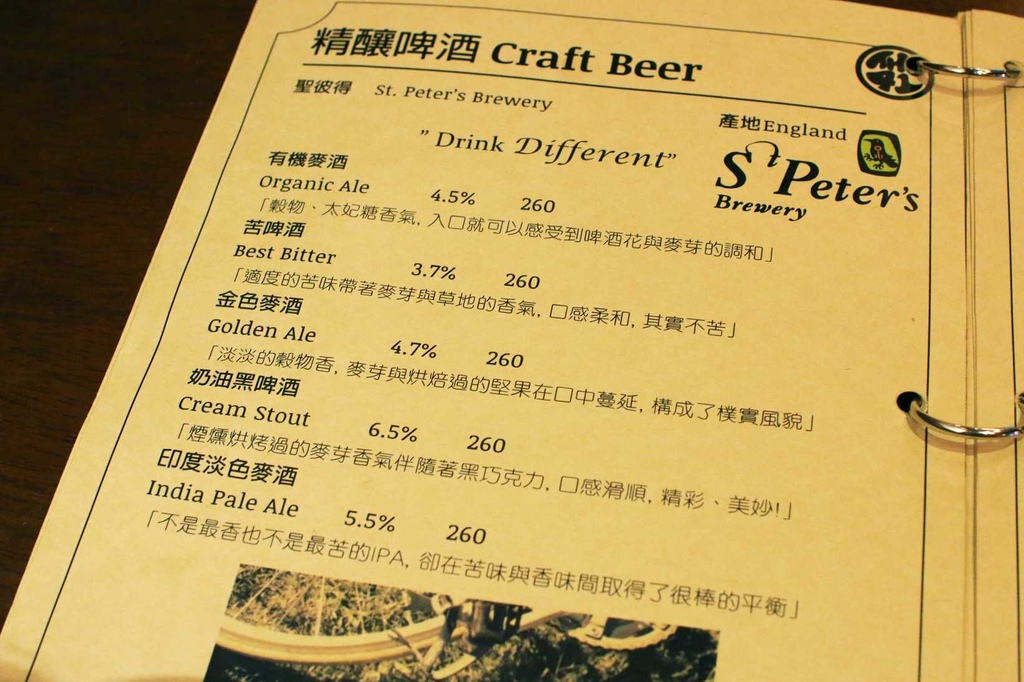 精釀啤酒 Craft Beer
聖彼得 St. Peter's Brewery
產地England
" Drink Different"
St Peter's
Brewery
有機麥酒
Organic Ale 4.5% 260
「穀物、太妃糖香氣, 入口就可以感受到啤酒花與麥芽的調和」
苦啤酒
Best Bitter 3.7% 260
「適度的苦味帶著麥芽與草地的香氣, 口感柔和, 其實不苦」
金色麥酒
Golden Ale 4.7% 260
「淡淡的穀物香, 麥芽與烘焙過的堅果在口中蔓延, 構成了樸實風貌」
奶油黑啤酒
Cream Stout 6.5% 260
「煙燻烘烤過的麥芽香氣伴隨著黑巧克力, 口感滑順, 精彩、美妙!」
印度淡色麥酒
India Pale Ale 5.5% 260
「不是最香也不是最苦的IPA, 卻在苦味與香味間取得了很棒的平衡」